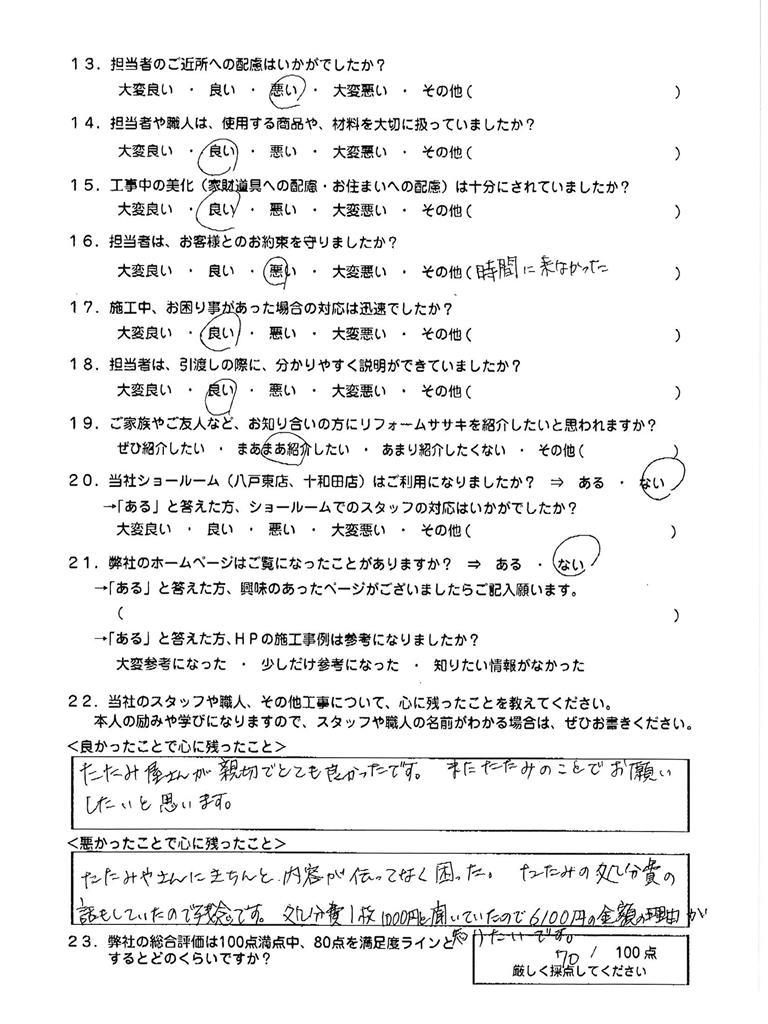 13．担当者のご近所への配慮はいかがでしたか？
大変良い ・ 良い ・ 悪い ・ 大変悪い ・ その他（ ）
14．担当者や職人は、使用する商品や、材料を大切に扱っていましたか？
大変良い ・ 良い ・ 悪い ・ 大変悪い ・ その他（ ）
15．工事中の美化（家財道具への配慮・お住まいへの配慮）は十分にされていましたか？
大変良い ・ 良い ・ 悪い ・ 大変悪い ・ その他（ ）
16．担当者は、お客様とのお約束を守りましたか？
大変良い ・ 良い ・ 悪い ・ 大変悪い ・ その他（時間に来なかった ）
17．施工中、お困り事があった場合の対応は迅速でしたか？
大変良い ・ 良い ・ 悪い ・ 大変悪い ・ その他（ ）
18．担当者は、引渡しの際に、分かりやすく説明ができていましたか？
大変良い ・ 良い ・ 悪い ・ 大変悪い ・ その他（ ）
19．ご家族やご友人など、お知り合いの方にリフォームササキを紹介したいと思われますか？
ぜひ紹介したい ・ まあまあ紹介したい ・ あまり紹介したくない ・ その他（ ）
20．当社ショールーム（八戸東店、十和田店）はご利用になりましたか？ ⇒ ある ・ ない
→「ある」と答えた方、ショールームでのスタッフの対応はいかがでしたか？
大変良い ・ 良い ・ 悪い ・ 大変悪い ・ その他（ ）
21．弊社のホームページはご覧になったことがありますか？ ⇒ ある ・ ない
→「ある」と答えた方、興味のあったページがございましたらご記入願います。
（ ）
→「ある」と答えた方、ＨＰの施工事例は参考になりましたか？
大変参考になった ・ 少しだけ参考になった ・ 知りたい情報がなかった
22．当社のスタッフや職人、その他工事について、心に残ったことを教えてください。
本人の励みや学びになりますので、スタッフや職人の名前がわかる場合は、ぜひお書きください。
＜良かったことで心に残ったこと＞
たたみ屋さんが親切でとても良かったです。 またたたみのことでお願い
したいと思います。
＜悪かったことで心に残ったこと＞
たたみやさんにきちんと内容が伝ってなく困った。 たたみの処分費の
話もしていたので残念です。 処分費1枚1000円と聞いていたので6100円の金額の理由が
知りたいです。
23．弊社の総合評価は100点満点中、80点を満足度ラインと
するとどのくらいですか？
70 / 100点
厳しく採点してください